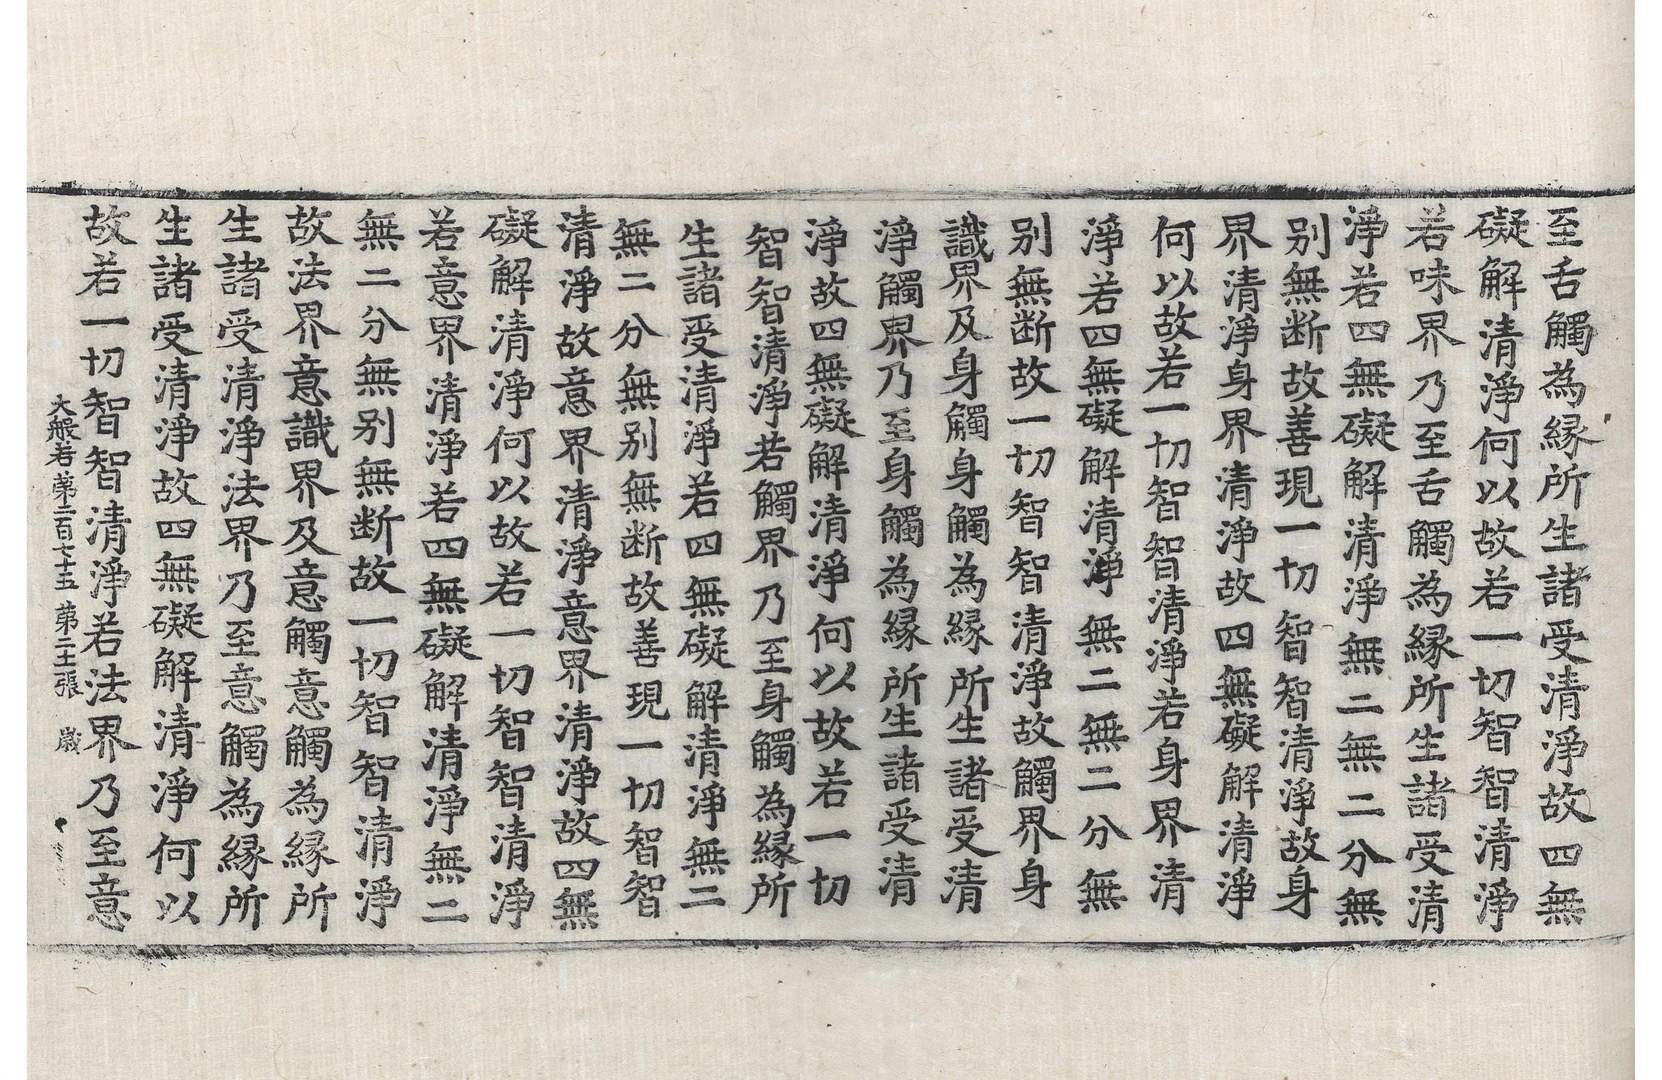 至舌觸為縁所生諸受清淨故四無
礙解清淨何以故若一切智智清淨
若味界乃至舌觸為縁所生諸受清
淨若四無礙解清淨無二無二分無
别無断故善現一切智智清淨故身
界清淨身界清淨故四無礙解清淨
何以故若一切智智清淨若身界清
淨若四無礙解清淨無二無二分無
别無断故一切智智清淨故觸界身
識界及身觸身觸為縁所生諸受清
淨觸界乃至身觸為縁所生諸受清
淨故四無礙解清淨何以故若一切
智智清淨若觸界乃至身觸為縁所
生諸受清淨若四無礙解清淨無二
無二分無别無断故善現一切智智
清淨故意界清淨意界清淨故四無
礙解清淨何以故若一切智智清淨
若意界清淨若四無礙解清淨無二
無二分無别無断故一切智智清淨
故法界意識界及意觸意觸為縁所
生諸受清淨法界乃至意觸為縁所
生諸受清淨故四無礙解清淨何以
故若一切智智清淨若法界乃至意
大般若第二百七十五 第二十一張 歲